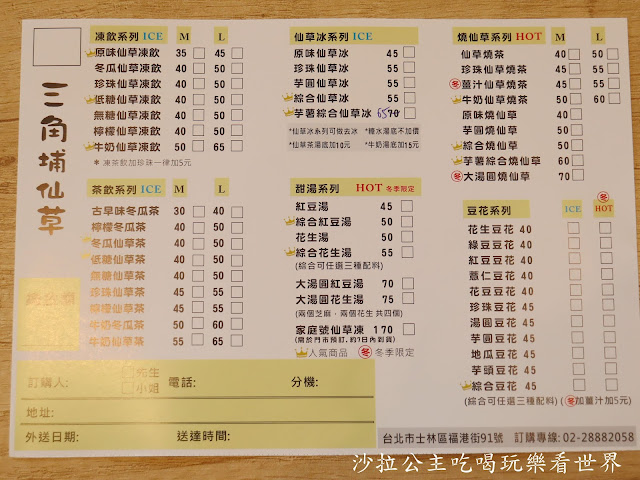 三角埔仙草
凍飲系列 ICE M L
原味仙草凍飲 35 45
冬瓜仙草凍飲 40 50
珍珠仙草凍飲 40 50
低糖仙草凍飲 40 50
無糖仙草凍飲 40 50
檸檬仙草凍飲 40 50
牛奶仙草凍飲 50 65
*凍茶飲加珍珠一律加5元
茶飲系列 ICE M L
古早味冬瓜茶 30 40
檸檬冬瓜茶 40 50
冬瓜仙草茶 40 50
低糖仙草茶 40 50
無糖仙草茶 40 50
珍珠仙草茶 45 55
檸檬仙草茶 45 55
牛奶冬瓜茶 50 60
牛奶仙草茶 55 65
仙草冰系列 ICE
原味仙草冰 45
珍珠仙草冰 55
芋圓仙草冰 55
綜合仙草冰 55
芋薯綜合仙草冰 65 70
*仙草冰系列可做去冰 *糖水湯底不加價
*仙草茶湯底加10元 *牛奶湯底加15元
甜湯系列 HOT 冬季限定
紅豆湯 45
綜合紅豆湯 50
花生湯 50
綜合花生湯 55
(綜合可任選三種配料)
大湯圓紅豆湯 70
大湯圓花生湯 75
(兩個芝麻,兩個花生 共四個)
家庭號仙草凍 170
(需於門市預訂,約7日內到貨)
人氣商品 冬 冬季限定
燒仙草系列 HOT M L
仙草燒茶 40 50
珍珠仙草燒茶 45 55
冬 薑汁仙草燒茶 45 55
牛奶仙草燒茶 50 60
原味燒仙草 40
芋圓燒仙草 50
綜合燒仙草 50
芋薯綜合燒仙草 60
冬 大湯圓燒仙草 70
冬
豆花系列 ICE HOT
花生豆花 40
綠豆豆花 40
紅豆豆花 40
薏仁豆花 40
花豆豆花 40
珍珠豆花 45
湯圓豆花 45
芋圓豆花 45
地瓜豆花 45
芋頭豆花 45
綜合豆花 45
(綜合可任選三種配料) (冬加薑汁加5元)
訂購人: 先生 小姐 電話: 分機:
地址:
外送日期: 送達時間:
台北市士林區福港街91號 訂購專線: 02-28882058
沙拉公主吃喝玩樂看世界